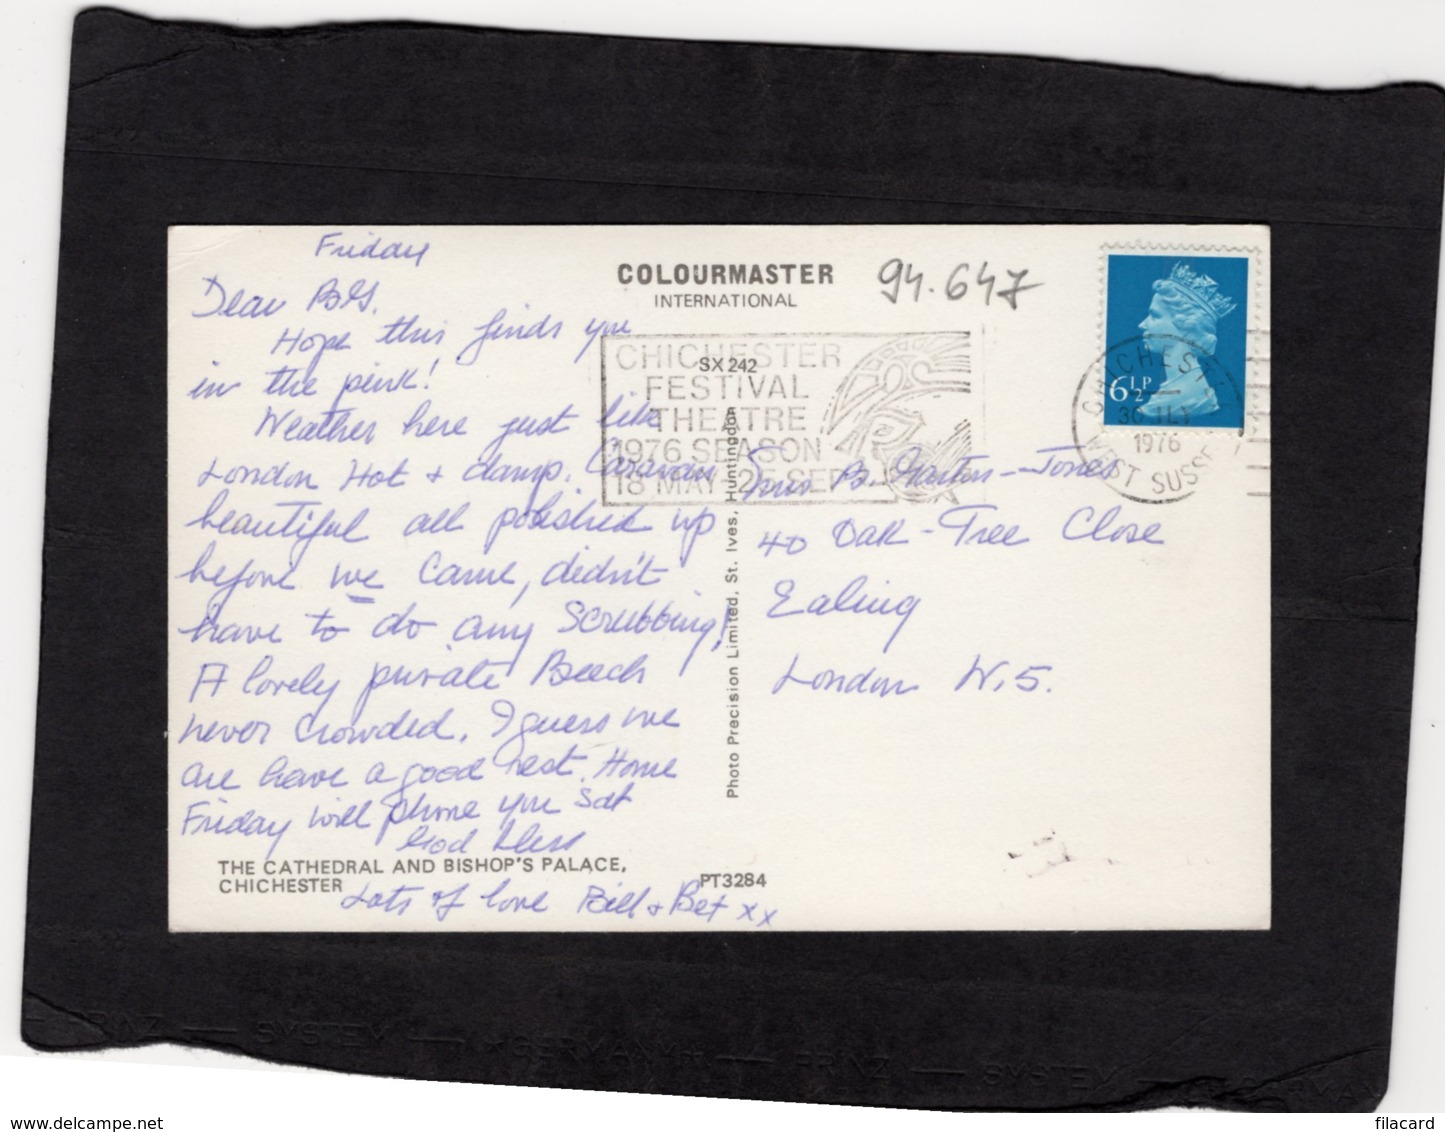 Friday
Dear
Hope this finds you
in the pink!
Weather here just like
London Hot & damp. Caravan
beautiful all polished up
before we came, didn't
have to do any Scrubbing!
A lovely private Beech
never Crowded. I guess we
are have a good rest. Home
Friday will phone you Sat
God bless
Lots of love Bill & Bet xx
COLOURMASTER
INTERNATIONAL
94.647
SX 242
CHICHESTER
FESTIVAL
THEATRE
1976 SEASON
18 MAY - 25 SEP
6½P
CHICHESTER
30 JLY
1976
WEST SUSSEX
B. -Jones
40 Oak-Tree Close
Ealing
London W.5.
Photo Precision Limited, St. Ives, Huntingdon
THE CATHEDRAL AND BISHOP'S PALACE,
CHICHESTER
PT3284
PRINZ — SYSTEM — GERMANY — PRINZ — SYSTEM —
www.delcampe.net
filacard